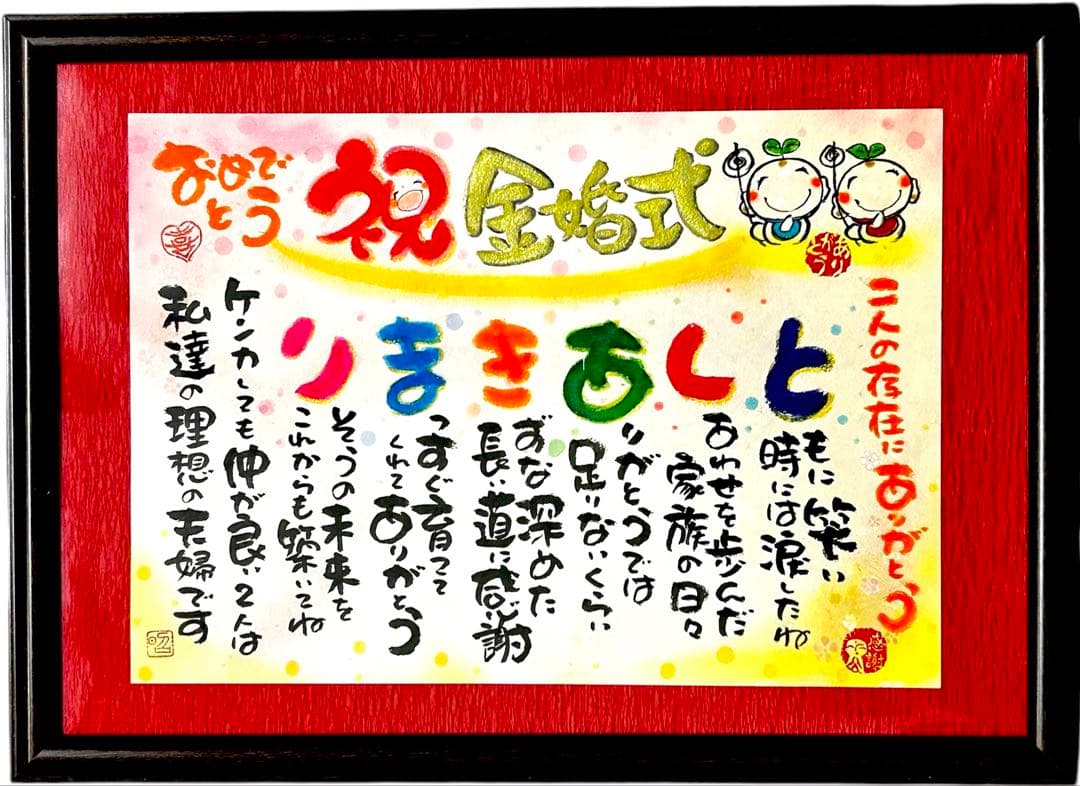 おめで
とう
喜
祝 金婚式
ありがとう
二人の存在にありがとう
感謝
ともに笑い
時には涙したね
しあわせを歩んだ
家族の日々
ありがとうでは
足りないくらい
きずな深めた
長い道に感謝
まっすぐ育てて
くれてありがとう
りそうの未来を
これからも築いてね
ケンカしても仲が良い2人は
私達の理想の夫婦です